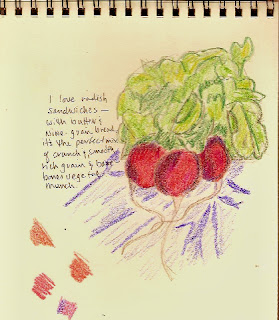 I love radish
sandwiches —
with butter &
nine-grain bread,
it's the perfect mix
of crunch & smooth
rich grain & bare
bones vegetal
munch.